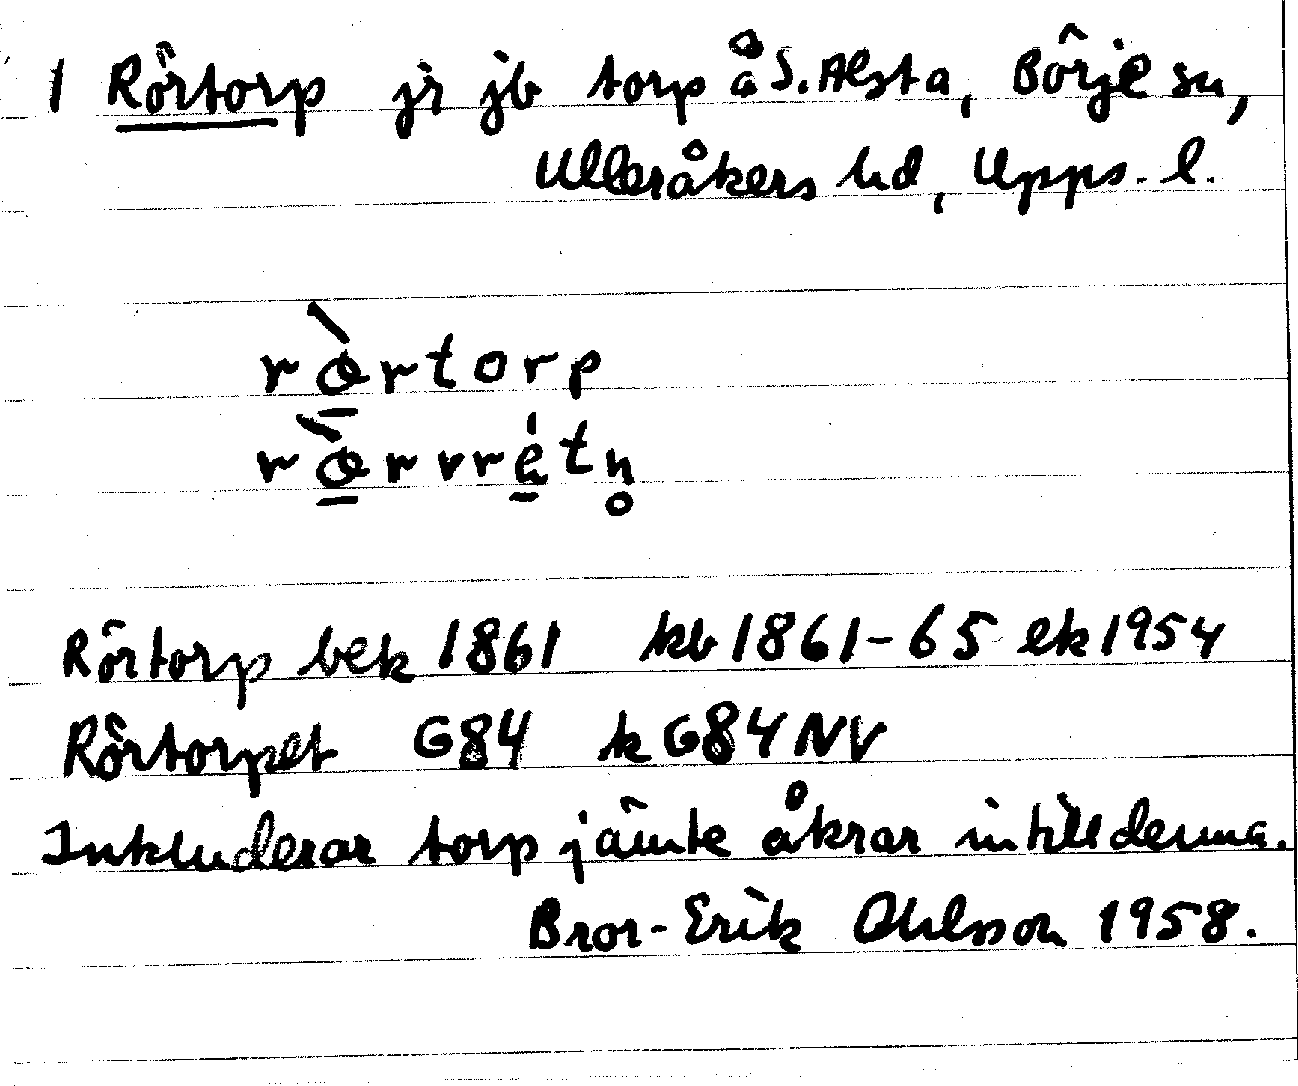 1 Rörtorp jr jb torp å S. Alsta, Börje sn,
Ulleråkers hd, Upps. l.
rø̠̀rtorp
rø̠̀rvré̠tn̥
Rörtorp bek 1861 kb 1861-65 ek 1954
Rörtorpet G84 k G84 NV
Inkluderar torp jämte åkrar intill denna.
Bror-Erik Ohlsson 1958.